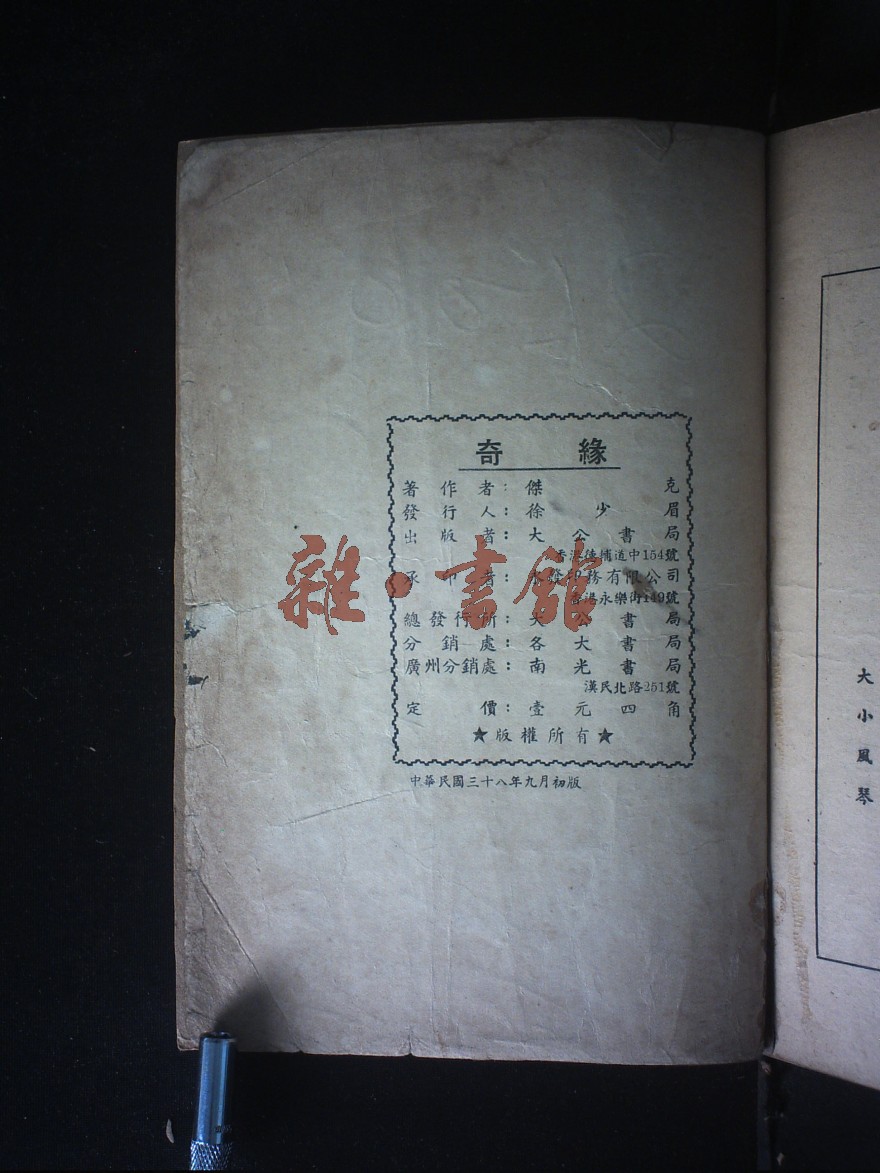 奇緣
著作者：傑克
發行人：徐少眉
出版者：大公書局
香港德輔道中154號
承印者：永發印務有限公司
香港永樂街149號
總發行所：大公書局
分銷處：各大書局
廣州分銷處：南光書局
漢民北路251號
定價：壹元四角
★版權所有★
中華民國三十八年九月初版
雜·書館
大小風琴